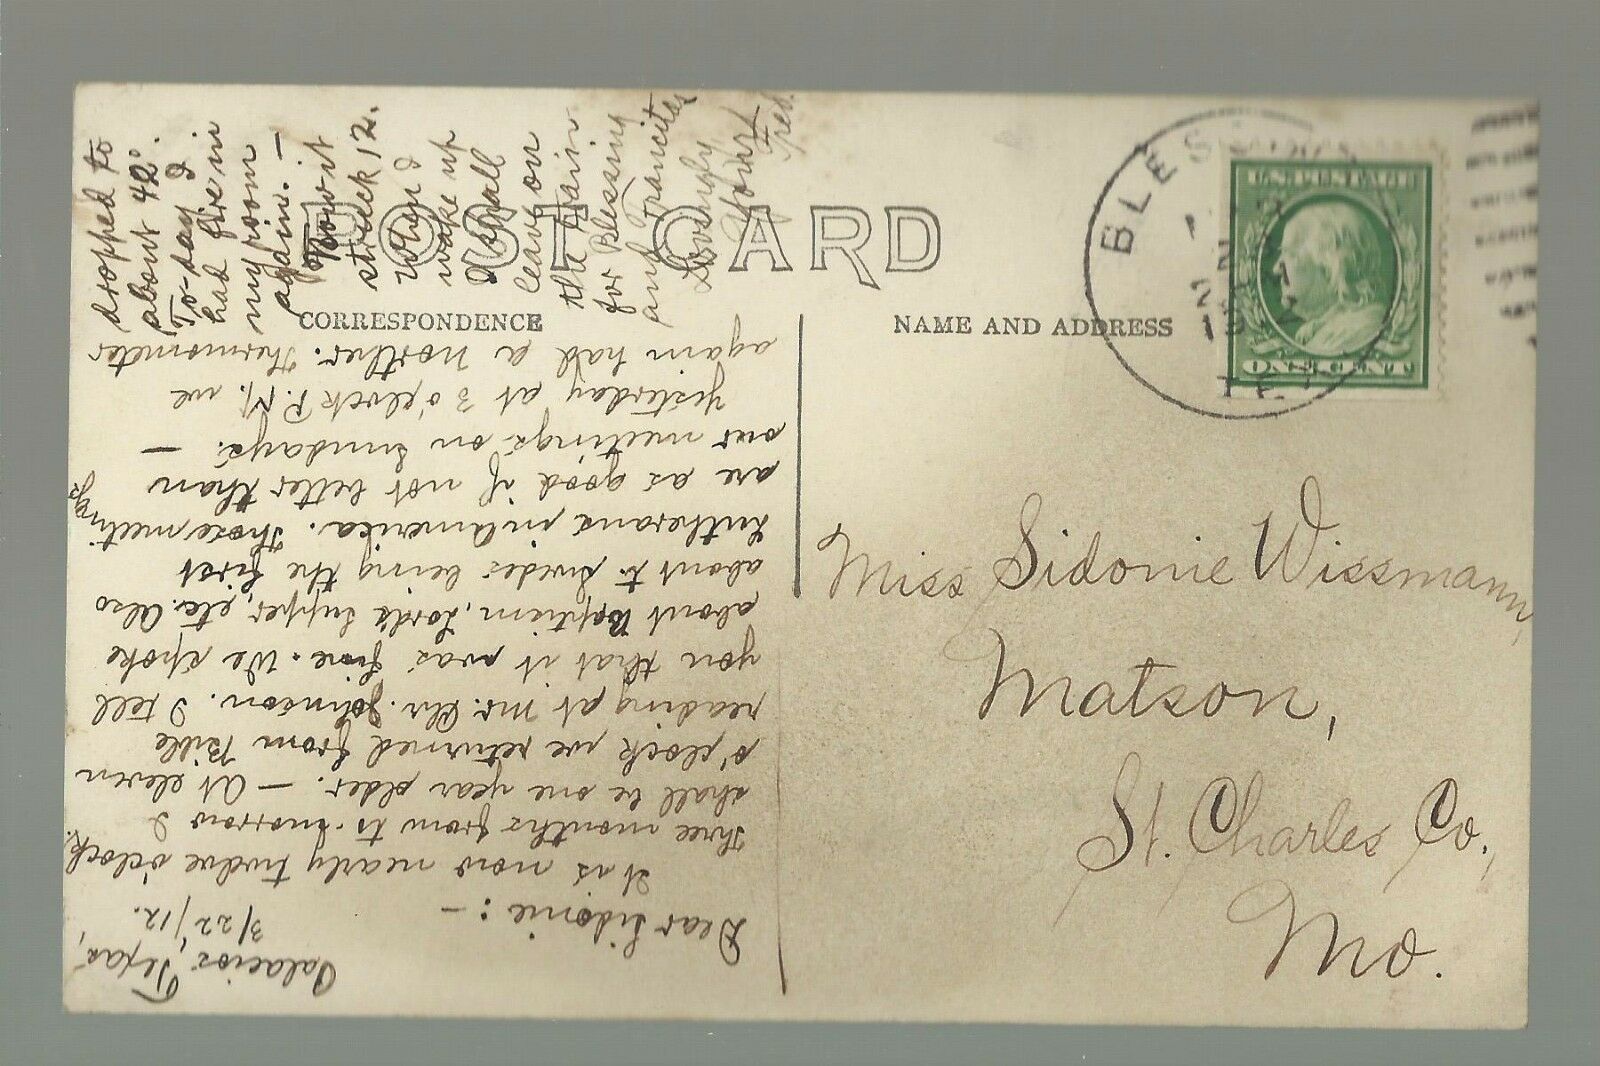 POST CARD
CORRESPONDENCE
NAME AND ADDRESS
Palacios, Texas,
3/22/12.
Dear Sidonie: —
It is now nearly twelve o'clock.
Three months from to-morrow I
shall be one year older. — At eleven
o'clock we returned from Bible
reading at Mr. Chr. Johnson. I tell
you that it was fine. We spoke
about Baptism, Lord's Supper, etc. Also
about Swedes being the first
Lutherans in America. Those meetings
are as good if not better than
our meetings on Sundays. —
Yesterday at 3 o'clock P.M. we
again had a norther. Thermometer
dropped to
about 42°.
To-day I
had fire in
my room
again. —
Now it
struck 12.
When I
wake up
I shall
leave on
the train
for Blessing
and Francitas
Lovingly
Your
Fred.
Miss Sidonie Wissmann,
Matson,
St. Charles Co.,
Mo.
BLES
TEX
U.S. POSTAGE
ONE CENT